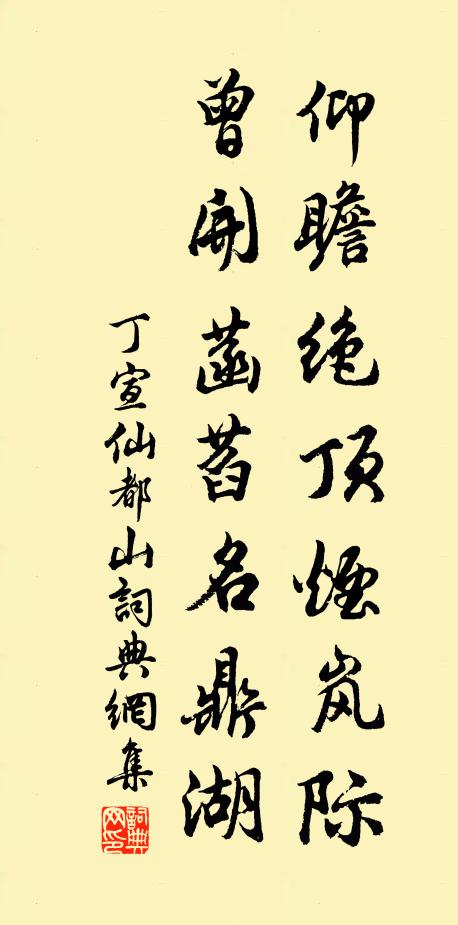 仰瞻绝顶烟岚际
曾开菡萏名鼎湖
丁宣仙都山詞典網集
詞典网印